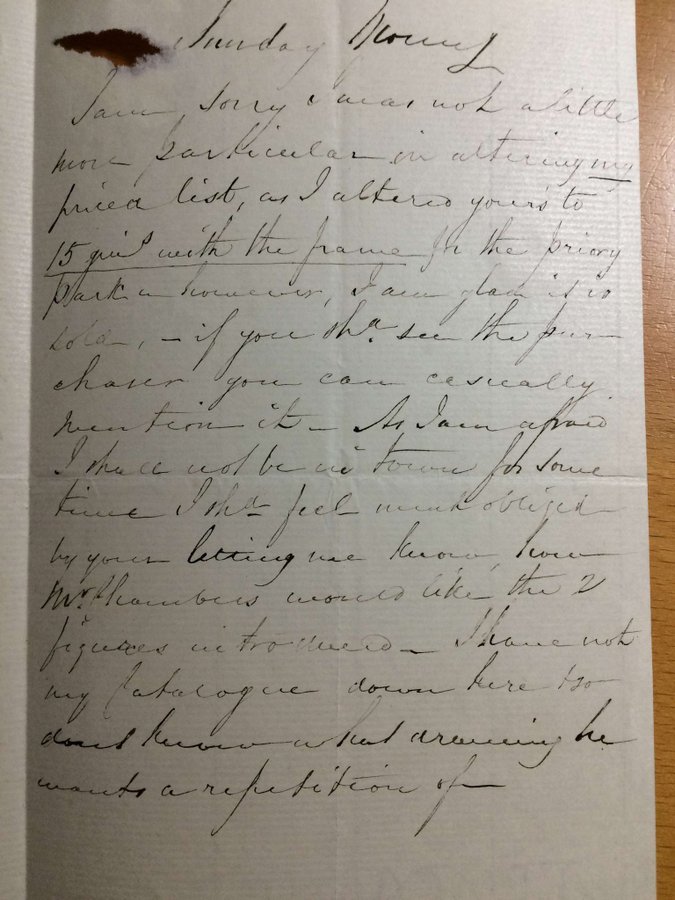 Sunday Morng
I am sorry I was not a little
more particular in altering my
priced list, as I altered yours to
15 guis with the frame for the priory
park - however, I am glad it is
sold, - if you shd. see the pur-
chaser you can casually
mention it - As I am afraid
I shall not be in town for some
time I shd feel much obliged
by your letting me know, how
Mr. Chambers would like the 2
figures introduced - I have not
my Catalogue down here & so
dont know what drawing he
wants a repetition of -